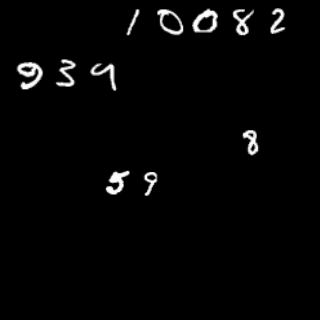 10082
939
8
59